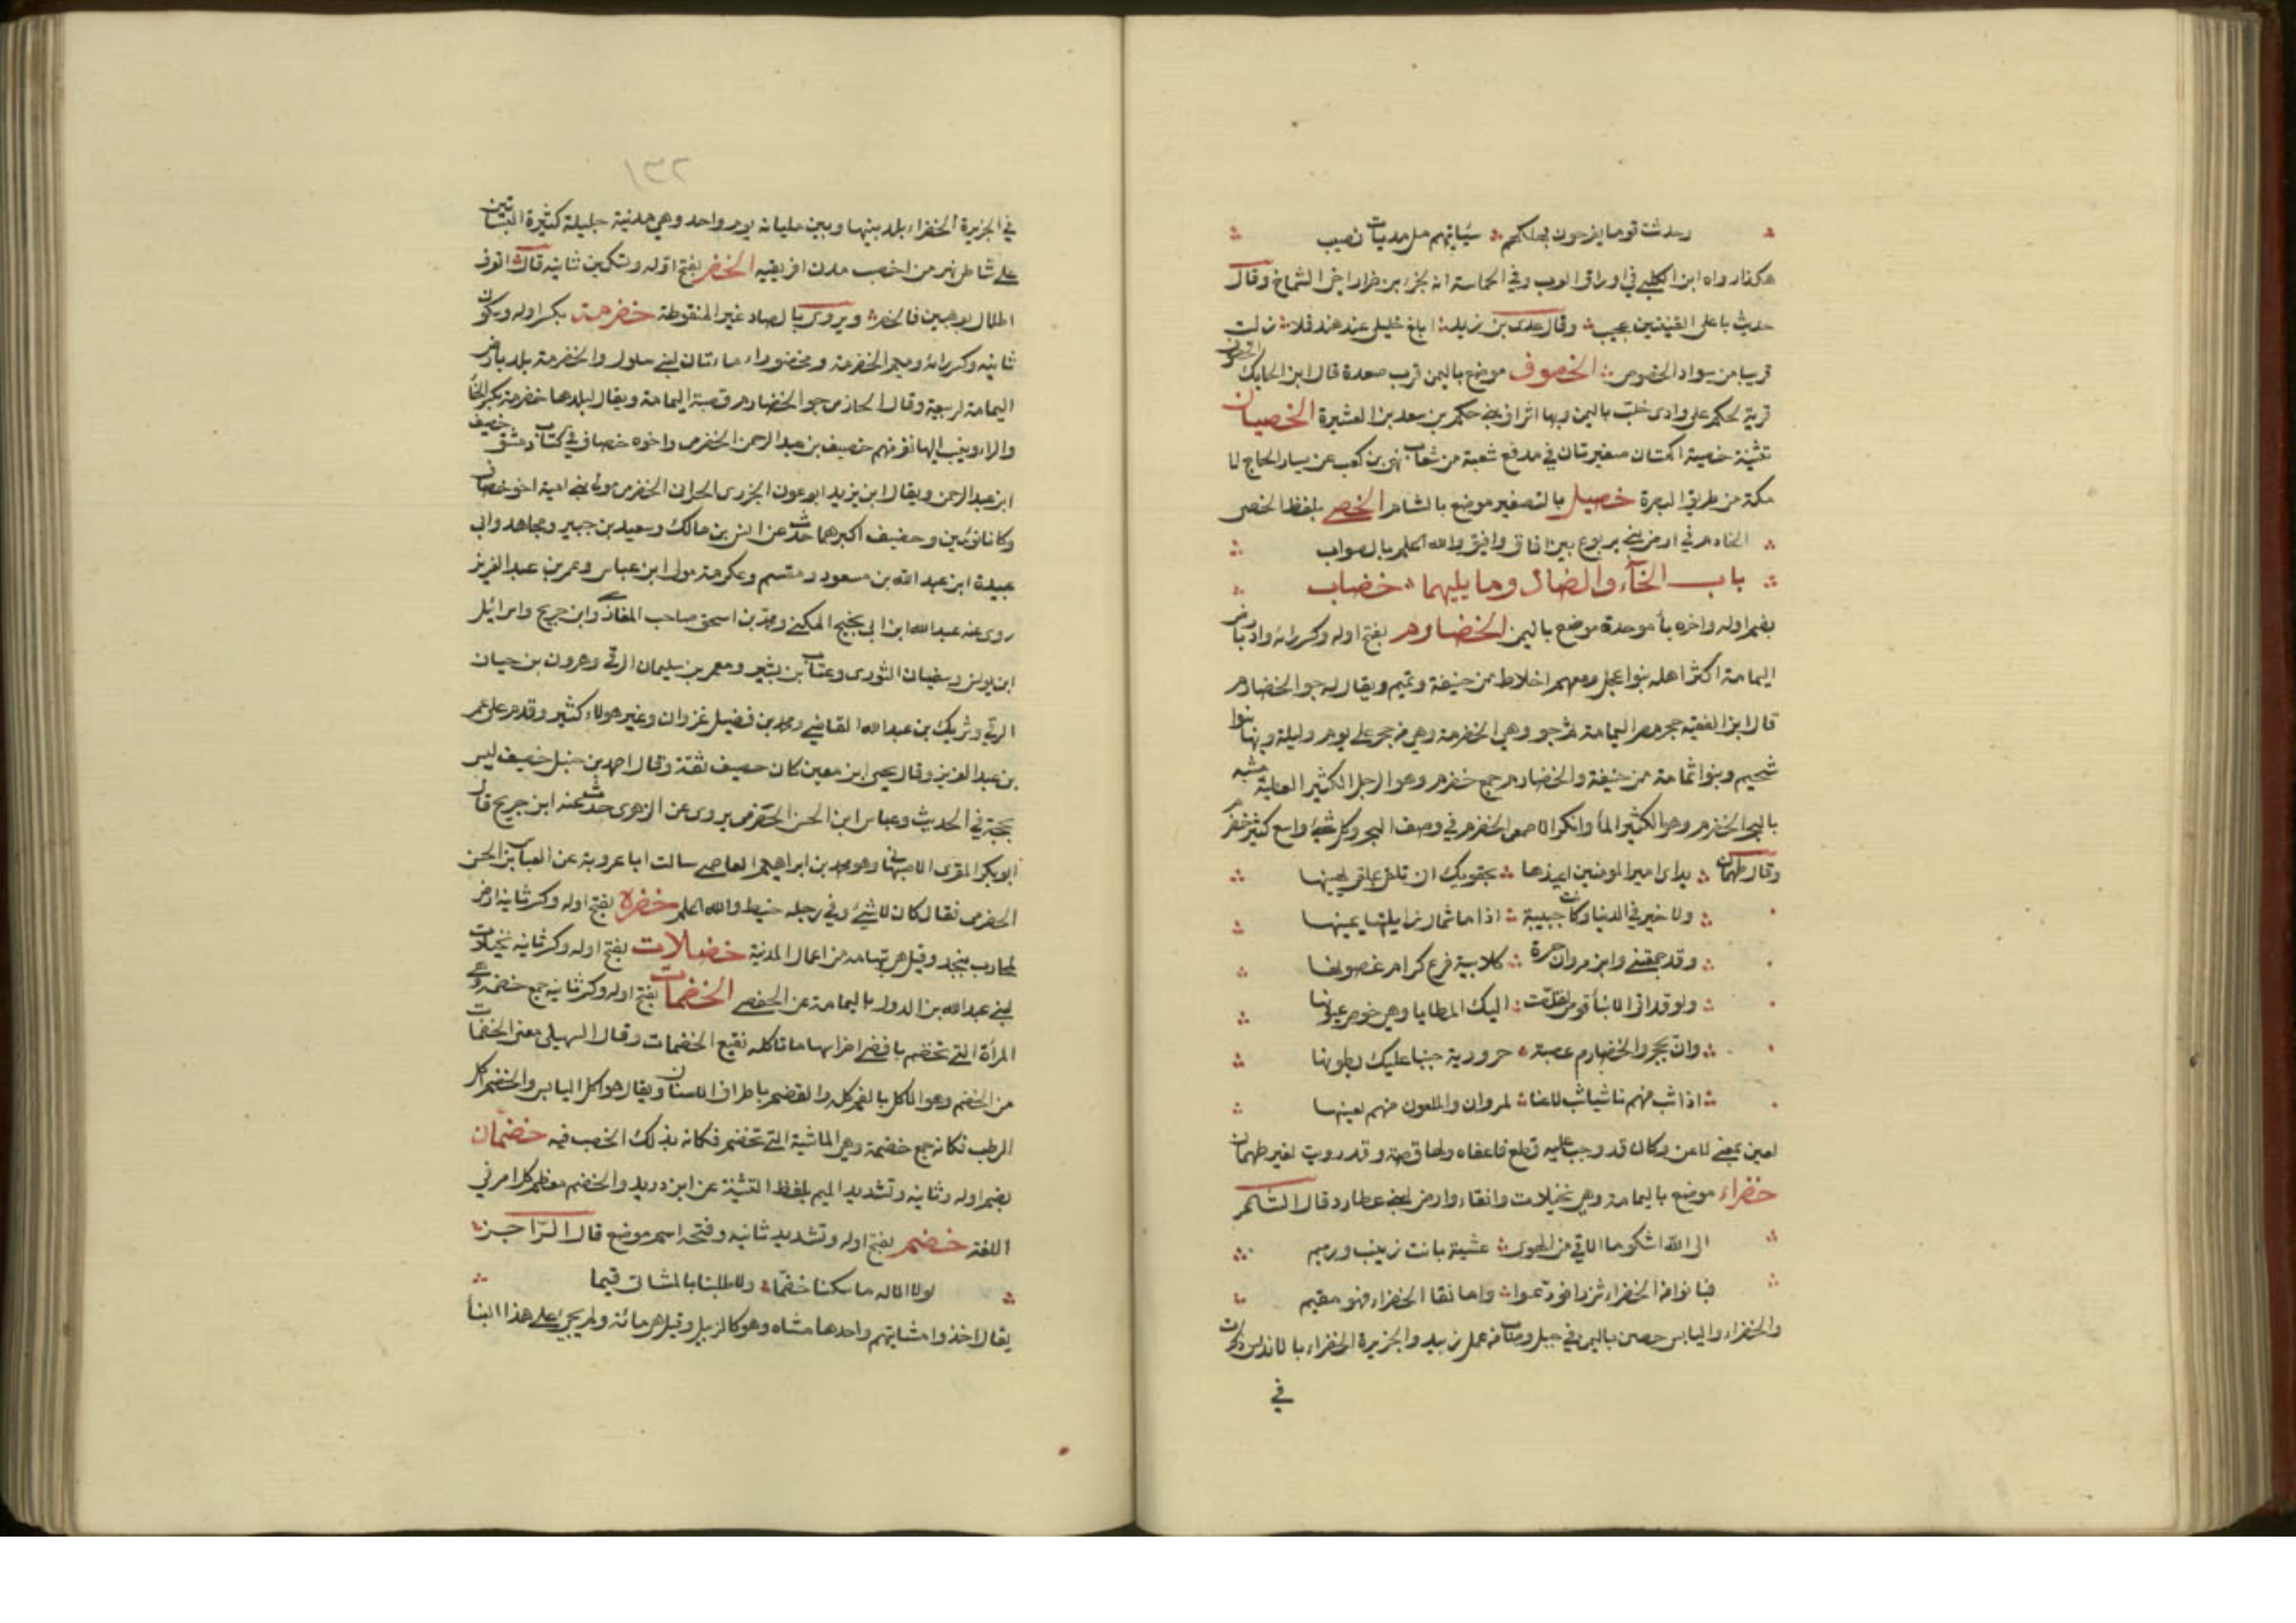 وحدثت قوما يفرحون بهلكهم سيأتيهم مل مديات نصيب
هكذا رواه ابن الكلبي في اوراق العرب وفي الحماسة انه لجزء بن ضرار اخي الشماخ وقال
حديث باعلى القنتين عجيب وقال عدى بن زيد ابلغ خليلي عند هند فلا زلت
قريبا من سواد الخصوص الخصوف موضع باليمن قرب صعدة قال ابن الحايك الخصوف
قرية لحكم على وادى خلب باليمن وبها اشراف بني حكم بن سعد بن العشيرة الخصيان
تثنية خصية اكمتان صغيرتان في مدفع شعبة من شعاب نهى بن كعب عن يسار الحاج الى
مكة من طريق البصرة خصيل بالتصغير موضع بالشام الخصي بلفظ الخصى
الخادم في ارض بني يربوع بين افاق وافيق والله اعلم بالصواب
باب الخاء والضاد وما يليهما خضاب
بضم اوله واخره باء موحدة موضع باليمن الخضارم بفتح اوله وكسر رائه واد بارض
اليمامة اكثر اهله بنوا عجل ومعهم اخلاط من حنيفة وتميم ويقال له جو الخضارم
قال ابن الفقيه حجر مصر اليمامة ثم جو وهي الخضرمة وهي من حجر على يوم وليلة وبها بنوا
سحيم وبنوا ثمامة من حنيفة والخضارم جمع خضرم وهو الرجل الكثير العطية مشبه
بالبحر الخضرم وهو الكثير الماء وانكر الاصمعى الخضرم في وصف البحر وكل شيء واسع كثير خضرم
وقال طهمان يداى امير المؤمنين اعيذها بحقويك ان تلقى بملقى يهينها
ولا خير في الدنيا وكانت حبيبة اذا ما شمال زايلتها يمينها
وقد جمعتني وابن مروان حرة كلابية فرع كرام غصونها
ولو قد اتى الانباء قومى لقلصت اليك المطايا وهي خوص عيونها
وان بحجر والخضارم عصبة حرورية حبنا عليك بطونها
اذا شب منهم ناشئ شب لاعنا لمروان والملعون منهم لعينها
لعين بمعنى لاعن وكان قد وجب عليه قطع فاعفاه ولها قصة وقد رويت لغير طهمان
خضراء موضع باليمامة وهي نخيلات وانقاء وارض لبني عطارد قال الشاعر
الى الله اشكو ما الاقي من الهوى عشية بانت زينب ورميم
فبانوا من الخضراء شزرا فودعوا واما نقا الخضراء فهو مقيم
والخضراء واليابس حصن باليمن في جبل وصاب من عمل زبيد والجزيرة الخضراء بالاندلس ذكرت
في
١٣٢
في الجزيرة الخضراء بلد بينها وبين مليانه يوم واحد وهي مدنية جليلة كثيرة البساتين
على شاطئ نهر من اخصب مدن افريقيه الخضر بفتح اوله وتسكين ثانيه قال اتعرف
اطلالا بوهبين فالخضر ويروى بالصاد غير المنقوطة خضرمة بكسر اوله وسكون
ثانيه وكسر رائه وميم الخضرمة ومخضوراء ماءتان لبني سلول والخضرمة بلد بارض
اليمامة لربيعة وقال الحازمى جو الخضارم قصبة اليمامة ويقال لبلدها خضرمة بكسر الخاء
والراء وينسب اليها نفر منهم خصيف بن عبد الرحمن الخضرمى واخوه خصاف في كتاب دمشق خصيف
ابن عبد الرحمن ويقال ابن يزيد ابو عون الجزرى الحرانى الخضرمى مولى بني امية اخو خصاف
وكانا توءمين وخصيف اكبرهما حدث عن انس بن مالك وسعيد بن جبير ومجاهد وابى
عبيدة ابن عبد الله بن مسعود ومقسم وعكرمة مولى ابن عباس وعمر بن عبد العزيز
روى عنه عبد الله ابن ابى نجيح المكي ومحمد بن اسحق صاحب المغازى وابن جريج واسرائيل
ابن يونس وسفيان الثورى وعتاب بن بشير ومعمر بن سليمان الرقي وهرون بن حيان
الرقي وشريك بن عبد الله القاضي ومحمد بن فضيل غزوان وغير هولاء كثير وقدم على عمر
بن عبد العزيز وقال يحيى ابن معين كان خصيف ثقة وقال احمد بن حنبل خصيف ليس
بحجة في الحديث وعباس ابن الحسن الخضرمى يروى عن الزهرى حدث عنه ابن جريج قال
ابو بكر المقرى الاصبهانى وهو محمد بن ابراهيم العاصمى سالت ابا عروبة عن العباس بن الحسن
الخضرمى فقال كان لا شيء وفي رجله خيط والله اعلم خضره بفتح اوله وكسر ثانيه ارض
لمحارب بنجد وقيل هي بتهامه من اعمال المدنية خضلات بفتح اوله وكسر ثانيه نخيلات
لبني عبد الله بن الدول باليمامة عن الحفصي الخضمات بفتح اوله وكسر ثانيه جمع خضمة وهي
المرأة التي تخضم باقصي اضراسها ما تاكله نقيع الخضمات وقال السهيلى معنى الخضمات
من الخضم وهو الاكل بالفم كله والقضم باطراف الاسنان ويقال هو اكل اليابس والخضم اكل
الرطب فكانه جمع خضمة وهي الماشية التي تخضم فكانه بذلك الخصب فيه خضمان
بضم اوله وثانيه وتشديد الميم بلفظ التثنية عن ابن دريد والخضم معظم كل امر في
اللغة خضم بفتح اوله وتشديد ثانيه وفتحه اسم موضع قال الراجز
لولا الاله ما سكنا خضما ولا ظللنا بالمشائى قيما
يقال اخذوا مشايتهم واحدها مشاه وهو كالزبيل وقيل هو مائة ولم يجئ على هذا البناء